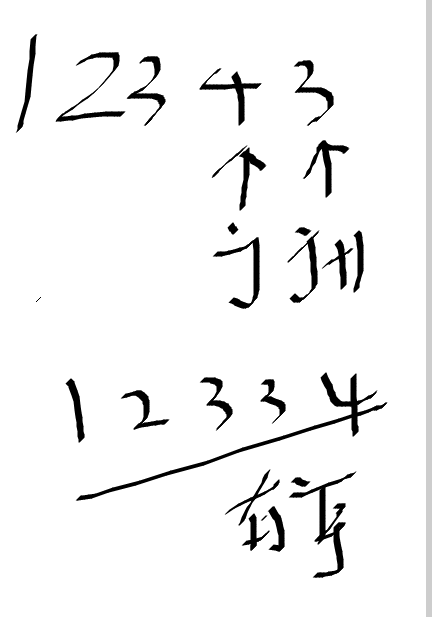 1 2 3 4 3
↑ ↑
j j+1
1 2 3 3 4
有序